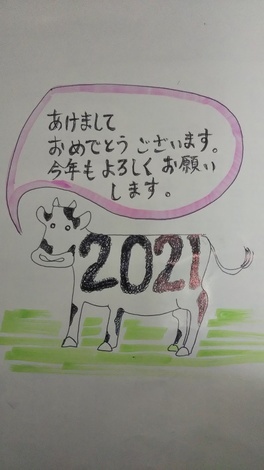 あけまして
おめでとうございます。
今年もよろしくお願い
します。
2021